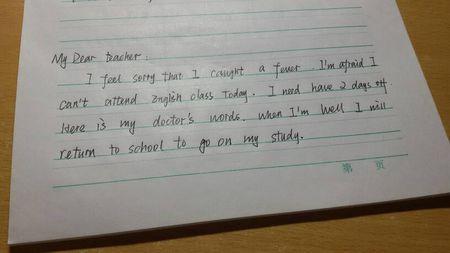 My Dear teacher:
I feel sorry that I caught a fever. I'm afraid I
can't attend English class Today. I need have 2 days off
Here is my doctor's words. when I'm well I will
return to school to go on my study.
第 页